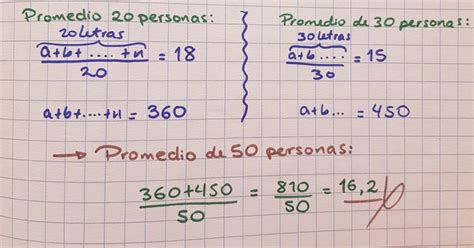 Promedio 20 personas:
20 letras
a+b+ .... +n = 18
20
a+b+....+n = 360
Promedio de 30 personas:
30 letras
a+b.... = 15
30
a+b... = 450
→ Promedio de 50 personas:
360+450 = 810 = 16,2
50 50